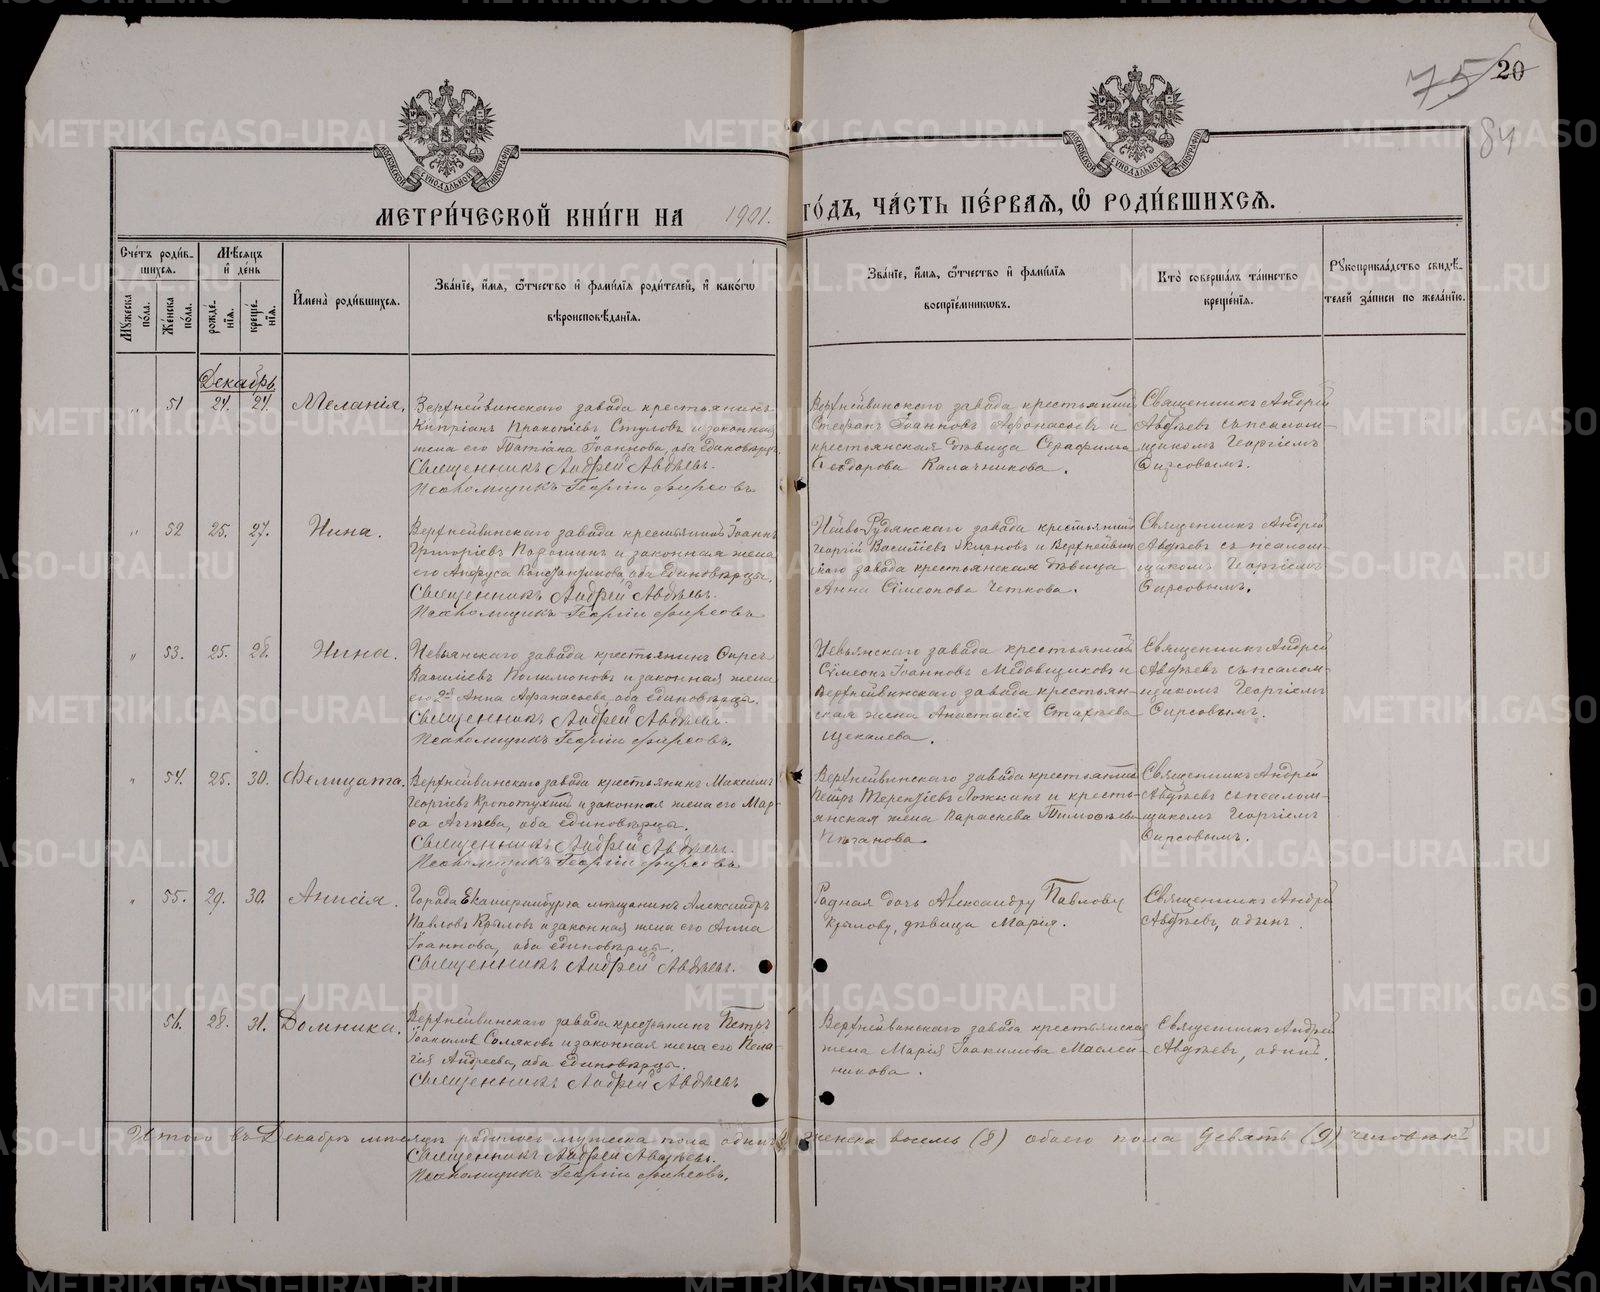 75 20
84
МОСКОВСКОЙ СѴНОДАЛЬНОЙ ТИПОГРАФІИ
МОСКОВСКОЙ СѴНОДАЛЬНОЙ ТИПОГРАФІИ
МЕТРИ́ЧЕСКОЙ КНИ́ГИ НА 1901. ГО́ДЪ, ЧА́СТЬ ПЕ́РВАЯ, Ѽ РОДИ́ВШИХСЯ.
Сче́тъ роди́в-
шихся.
Му́жеска по́ла.
Же́нска по́ла.
Мѣ́сяцъ и де́нь
рожде́-нія.
креще́-нія.
И҆мена̀ роди́вшихся.
Зва́ніе, и҆́мя, ѻ҆́тчество и҆ фами́лія роди́телей, и҆ како́гѡ
вѣроисповѣ́данія.
Зва́ніе, и҆́мя, ѻ҆́тчество и҆ фами́лія
воспріе́мникѡвъ.
Кто̀ соверша́лъ та́инство
креще́нія.
Рꙋкоприкла́дство свидѣ́-
телей за́писи по жела́нію.
Декабрь
" 51 24. 24. Меланія.
Верхнейвинскаго завода крестьянинъ
Кипріанъ Прокопіевъ Стуловъ и законная
жена его Татіана Іоаннова, оба единоверцы.
Священникъ Андрей Авдѣевъ.
Псаломщикъ Георгій Фирсовъ
Верхнейвинскаго завода крестьянинъ
Стефанъ Іоанновъ Афонасьевъ и
крестьянская дѣвица Серафима
Ѳеодорова Калачникова.
Священникъ Андрей
Авдѣевъ съ псалом-
щикомъ Георгіемъ
Фирсовымъ.
" 52 25. 27. Нина.
Верхнейвинскаго завода крестьянинъ Іоаннъ
Григоріевъ и законная жена
его Анфуса Константинова, оба единовѣрцы.
Священникъ Андрей Авдѣевъ.
Псаломщикъ Георгій Фирсовъ
Нейво-Рудянскаго завода крестьянинъ
Георгій Василіевъ и Верхнейвин
скаго завода крестьянская дѣвица
Анна Сімеонова Четкова.
Священникъ Андрей
Авдѣевъ съ псалом-
щикомъ Георгіемъ
Фирсовымъ.
" 53. 25. 28. Нина.
Невьянскаго завода крестьянинъ Фирсъ
Василіевъ Полимоновъ и законная жена
его 2ᵃ Анна Афанасьева, оба единоверцы.
Священникъ Андрей Авдѣевъ.
Псаломщикъ Георгій Фирсовъ.
Невьянскаго завода крестьянинъ
Сімеонъ Іоанновъ Медовщиковъ и
Верхнейвинскаго завода крестьян-
ская жена Анастасія Стахѣева
Щекалева.
Священникъ Андрей
Авдѣевъ съ псалом-
щикомъ Георгіемъ
Фирсовымъ.
" 54. 25. 30. Фелицата.
Верхнейвинскаго завода крестьянинъ Максимъ
Георгіевъ Кропотухин и законная жена его Мар-
ѳа Аггѣева, оба единовѣрцы.
Священникъ Андрей Авдѣевъ.
Псаломщикъ Георгій Фирсовъ
Верхнейвинскаго завода крестьянинъ
Петръ Терентіевъ Ложкинъ и кресть-
янская жена Параскева Тимоѳеева
Пѣганова.
Священникъ Андрей
Авдѣевъ съ псалом-
щикомъ Георгіемъ
Фирсовымъ.
" 55. 29. 30. Анисія.
Города Екатеринбурга мѣщанинъ Александръ
Павловъ Крыловъ и законная жена его Анна
Іоаннова, оба единовѣрцы.
Священникъ Андрей Авдѣевъ.
Родная дочь Александру Павлову
Крылову, дѣвица Марія.
Священникъ Андрей
Авдѣевъ, одинъ.
56. 28. 31. Домника.
Верхнейвинскаго завода крестьянинъ Петръ
Іоакимовъ Соляковъ и законная жена его Пела-
гія Андреева, оба единовѣрцы.
Священникъ Андрей Авдѣевъ
Верхнейвинскаго завода крестьянская
жена Марія Іоакимова Маслен-
никова.
Священникъ Андрей
Авдѣевъ, одинъ.
Итого въ Декабрѣ мѣсяцѣ родилось мужеска пола одинъ женска восемь (8) обоего пола девять (9) человѣкъ
Священникъ Андрей Авдѣевъ.
Псаломщикъ Георгій Фирсовъ.
METRIKI.GASO-URAL.RU